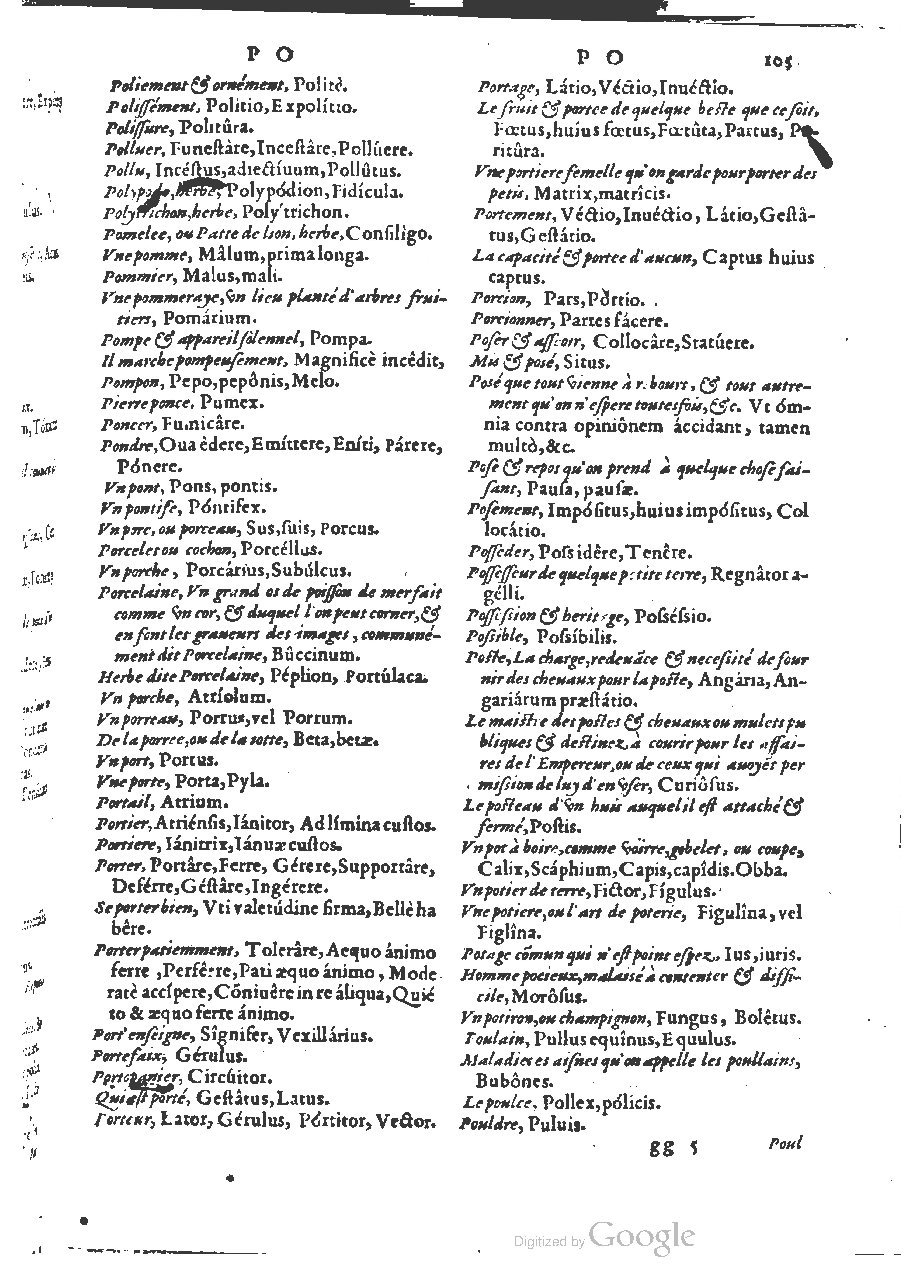 P O
Poliement & ornément, Politè.
Polissément, Politio, Expolítio.
Polissure, Politûra.
Polluer, Funestàre, Incestâre, Pollúere.
Pollu, Incéstus, adiectíuum, Pollûtus.
Polypode, herbe, Polypódion, Fidícula.
Polytrichon, herbe, Poly'trichon.
Pomelee, ou Patte de lion, herbe, Consiligo.
Vne pomme, Mâlum, prima longa.
Pommier, Malus, mali.
Vne pommeraye, vn lieu planté d'arbres frui-
tiers, Pomárium.
Pompe & appareil sólennel, Pompa.
Il marche pompeusement, Magnificè incédit,
Pompon, Pepo, pepônis, Melo.
Pierre ponce, Pumex.
Poncer, Pumicâre.
Pondre, Oua èdere, Emíttere, Eníti, Párere,
Pónere.
Vn pont, Pons, pontis.
Vn pontife, Póntifex.
Vn porc, ou porceau, Sus, suis, Porcus.
Porcelet ou cochon, Porcéllus.
Vn porche, Porcárius, Subúlcus.
Porcelaine, Vn grand os de poisson de mer fait
comme vn cor, & duquel l'on peut corner, &
en font les graueurs des images, communé-
ment dit Porcelaine, Bûccinum.
Herbe dite Porcelaine, Péplion, Portúlaca.
Vn porche, Atríolum.
Vn porreau, Porrus, vel Porrum.
De la porree, ou de la iotte, Beta, betæ.
Vn port, Portus.
Vne porte, Porta, Pyla.
Portail, Atrium.
Portier, Atriénsis, Iánitor, Ad límina custos.
Portiere, Iánitrix, Iánuæ custos.
Porter, Portâre, Ferre, Gérere, Supportâre,
Deférre, Géstâre, Ingérere.
Se porter bien, Vti valetúdine firma, Bellè ha
bêre.
Porter patiemment, Tolerâre, Aequo ánimo
ferre, Perférre, Pati æquo ánimo, Mode
ratè accípere, Cõniuêre in re áliqua, Quié
to & æquo ferre ánimo.
Port'enseigne, Sîgnifer, Vexillárius.
Portefaix, Gérulus.
Portepanier, Circúitor.
Qui est porté, Gestâtus, Latus.
Porteur, Lator, Gérulus, Pórtitor, Vector.
P O 105
Portage, Látio, Véctio, Inuéctio.
Le fruit & portee de quelque beste que ce soit,
Fœtus, huius fœtus, Fœtûra, Partus, Pa-
ritûra.
Vne portiere femelle qu'on garde pour porter des
petis, Matrix, matrîcis.
Portement, Véctio, Inuéctio, Látio, Gestâ-
tus, Gestátio.
La capacité & portee d'aucun, Captus huius
captus.
Portion, Pars, Pòrtio.
Portionner, Partes fácere.
Poser & asseoir, Collocâre, Statúere.
Mis & posé, Situs.
Posé que tout vienne à rebours, & tout autre-
ment qu'on n'espere toutesfois, &c. Vt óm-
nia contra opiniônem áccidant, tamen
multò, &c.
Pose & repos qu'on prend à quelque chose fai-
sant, Pausa, pausæ.
Posement, Impósitus, huius impósitus, Col
locátio.
Posseder, Possidêre, Tenêre.
Possesseur de quelque petite terre, Regnâtor a-
gélli.
Possession & heritage, Posséssio.
Possible, Possíbilis.
Poste, La charge, redeuãce & necessité de four
nir des cheuaux pour la poste, Angária, An-
gariárum præstátio.
Le maistre des postes & cheuaux ou mulets pu
bliques & destinez à courir pour les affai-
res de l'Empereur, ou de ceux qui auoyẽt per
mission de luy d'en vser, Curiôsus.
Le posteau d'vn huis auquel il est attaché &
fermé, Postis.
Vn pot à boire, comme voirre, gobelet, ou coupe,
Calix, Scáphium, Capis, capîdis. Obba.
Vn potier de terre, Fictor, Fígulus.
Vne potiere, ou l'art de poterie, Figulîna, vel
Figlîna.
Potage cõmun qui n'est point espez, Ius, iuris.
Homme pocieux, malaisé à contenter & diffi-
cile, Morôsus.
Vn potiron, ou champignon, Fungus, Bolêtus.
Poulain, Pullus equînus, Equulus.
Maladie es aisnes qu'on appelle les poullains,
Bubônes.
Le poulce, Pollex, póllicis.
Pouldre, Puluis.
gg 5 Poul
Digitized by Google